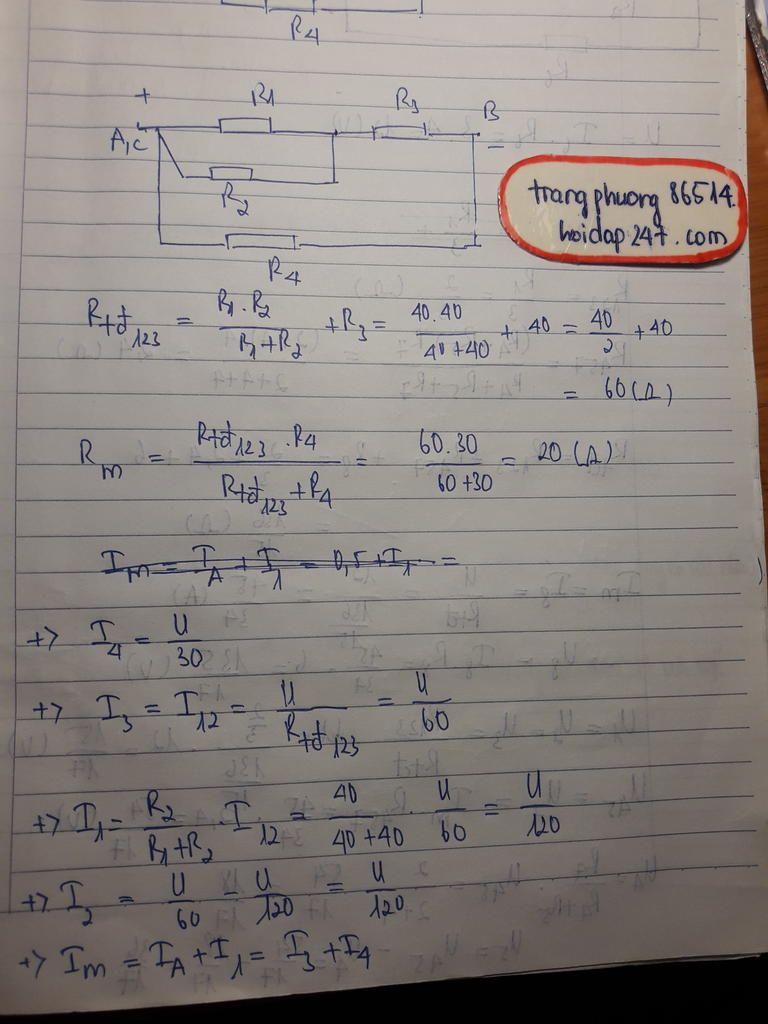 R4
+
R1
R3
B
A,C
–
R2
R4
trangphuong 86514.
hoidap247.com
Rtđ123 = R1.R2 / R1+R2 + R3 = 40.40 / 40+40 + 40 = 40/2 + 40
= 60 (Ω)
Rm = Rtđ123 . R4 / Rtđ123 + R4 = 60.30 / 60+30 = 20 (Ω)
Im = IA + I1 = 0,5 + I1 =
+> I4 = U/30
+> I3 = I12 = U / Rtđ123 = U/60
+> I1 = R2 / R1+R2 . I12 = 40 / 40+40 . U/60 = U/120
+> I2 = U/60 - U/120 = U/120
+> Im = IA + I1 = I3 + I4